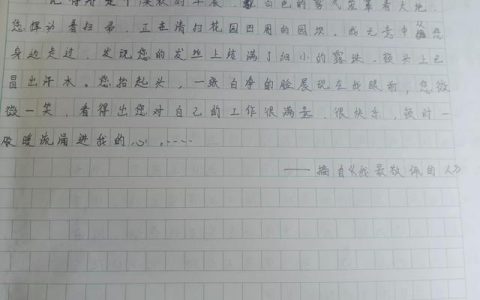 记得有是个深秋的早晨，白色的雾气笼罩着大地，
您挥动着扫帚，正在清扫花园四周的园坝。我无意中从您
身边走过，发现您的发丝上结满了细小的露珠，额头上已
冒出汗水。您抬起头，一张白净的脸展现在我眼前，您微
微一笑，看得出您对自己的工作很满意、很快乐，顿时一
股暖流涌进我的心……
——摘自《我最敬佩的人》